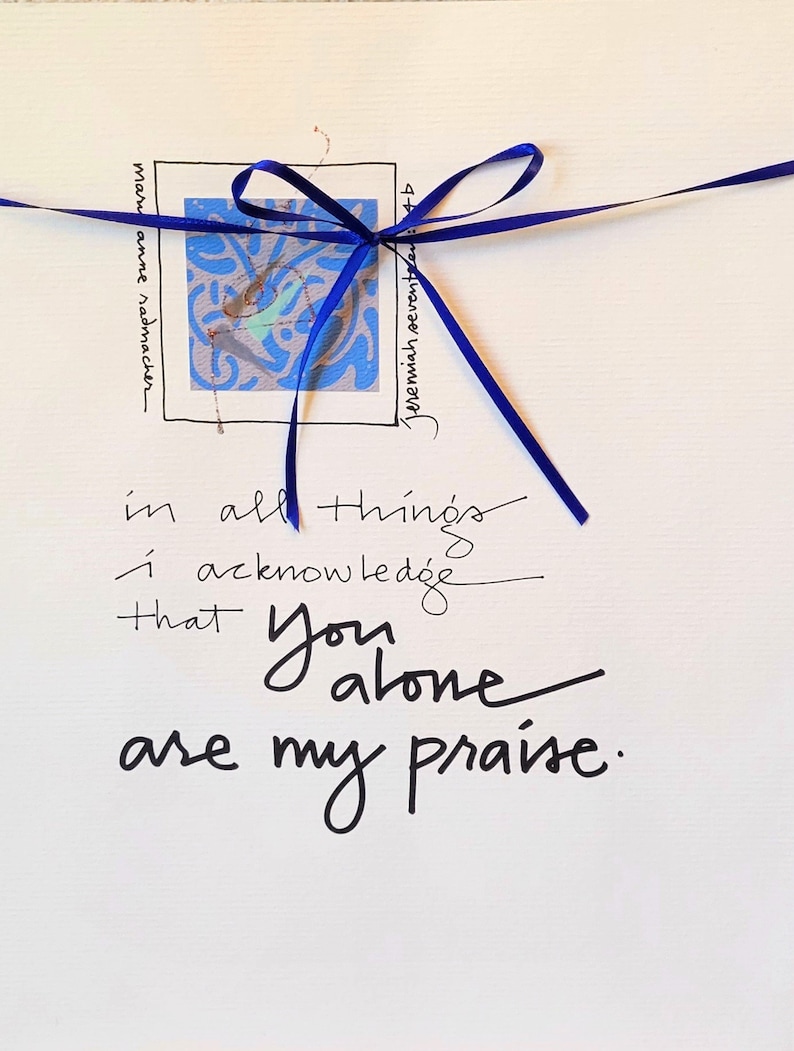 mary anne radmacher
jeremiah seventeen:
in all things
i acknowledge
that You
alone
are my praise.